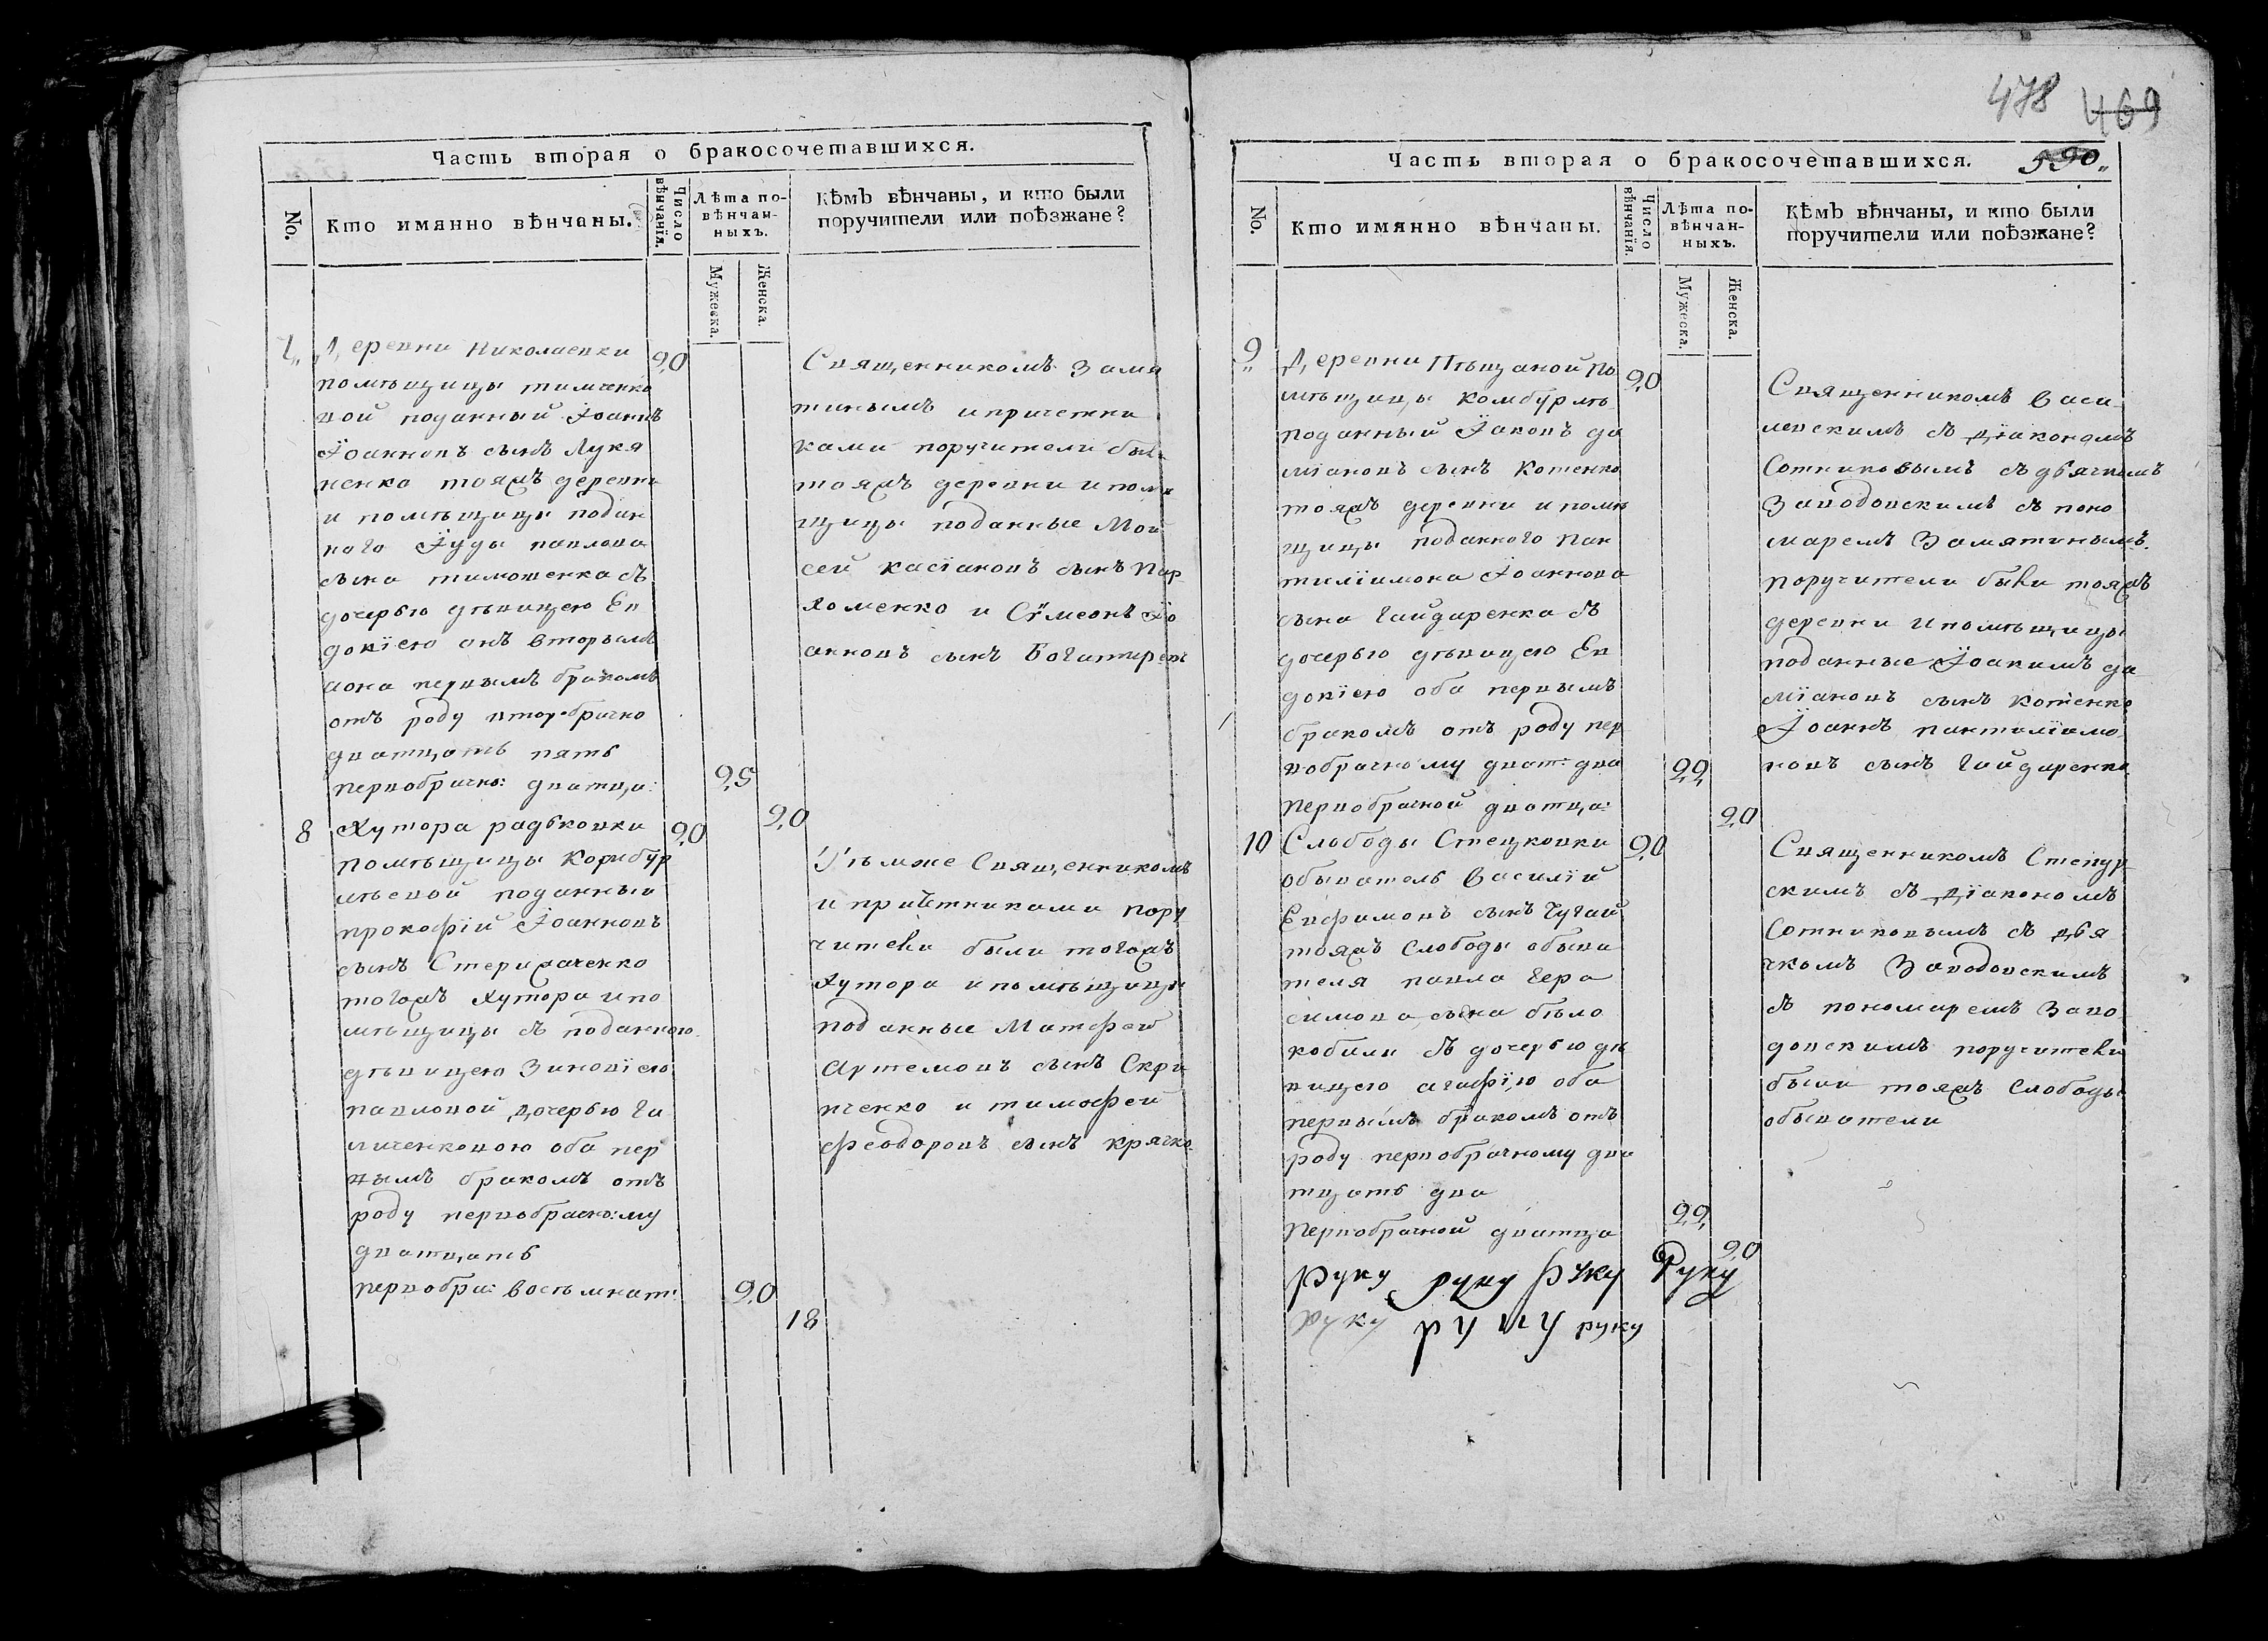 Часть вторая о бракосочетавшихся.
No.
Кто имянно вѣнчаны.
Число вѣнчанія.
Лѣта повѣнчанныхъ.
Мужеска.
Женска.
Кѣмъ вѣнчаны, и кто были
поручители или поѣзжане?
7
Деревни Николаевки
20
помѣщицы тимченко
вой поданный Іоаннъ
Іоанновъ сынъ Лукя
ненко тояжъ деревни
и помѣщицы подан
ного Іуды павлова
сына тимошенка съ
дочерью дѣвицею Ев
докіею онъ вторымъ
аона первымъ бракомъ
отъ роду второбрачно
дватцать пять
25
первобрачно: дватца:
20
Священникомъ Замя
тинымъ ипричетни
ками поручители были
тояжъ деревни ипомѣ
щицы поданные Мои
сей касіановъ сынъ Пар
хоменко и Сѵмеонъ Іо
анновъ сынъ Богатирев
8
Хутора радьковки
20
помѣщицы Корибур
мѣевой поданный
прокофій Іоанновъ
сынъ Стерихаченко
тогожъ хутора ипо
мѣщицы съ поданною
дѣвицею Зиновіею
павловой дочерью Га
личенковою оба пер
вымъ бракомъ отъ
роду первобрачно:му
дватцать
20
первобра: восѣмнат:
18
Тѣмже Священникомъ
и причѣтниками пору
чители были тогожъ
хутора ипомѣщицы
поданные Матфей
Артемовъ сынъ Скри
пченко и тимофей
феодоровъ сынъ крячко
478 469
Часть вторая о бракосочетавшихся. 590
No.
Кто имянно вѣнчаны.
Число вѣнчанія.
Лѣта повѣнчанныхъ.
Мужеска.
Женска.
Кѣмъ вѣнчаны, и кто были
поручители или поѣзжане?
9
Деревни Пѣщаной По
20
мѣщицы Комбурлѣ
поданный Іаковъ да
міановъ сынъ Котенко
тояжъ деревни ипомѣ
щицы поданного Пан
тиліимона Іоаннова
сына Гайдаренка съ
дочерью дѣвицею Ев
докіею оба первымъ
бракомъ отъ роду пер
вобрачному дват: два
22
первобрачной дватца:
20
Священникомъ Васи
левскимъ съ діякономъ
Сотниковымъ съ дьячкомъ
Заводовскимъ съ поно
маремъ Замятинымъ.
поручители были тояжъ
деревни ипомѣщицы
поданные Іоакимъ да
міановъ сынъ котенко
Іоаннъ пантиліимо
новъ сынъ Гайдаренко
10
Слободы Стецковки
20
обыватель Василій
Евфимовъ сынъ Чугай
тояжъ слободы обыва
теля павла Гера
симова сына бѣло
кобили съ дочерью дѣ
вицею агафіею оба
первымъ бракомъ отъ
роду первобрачному два
тцать два
22
первобрачной дватца
20
Священникомъ Степур
скимъ съ діякономъ
Сотниковымъ съ дья
чкомъ Заводовскимъ
съ пономаремъ Заво
довскимъ поручители
были тояжъ Слободы
обыватели
руку руку руку Руку
руку руку руку